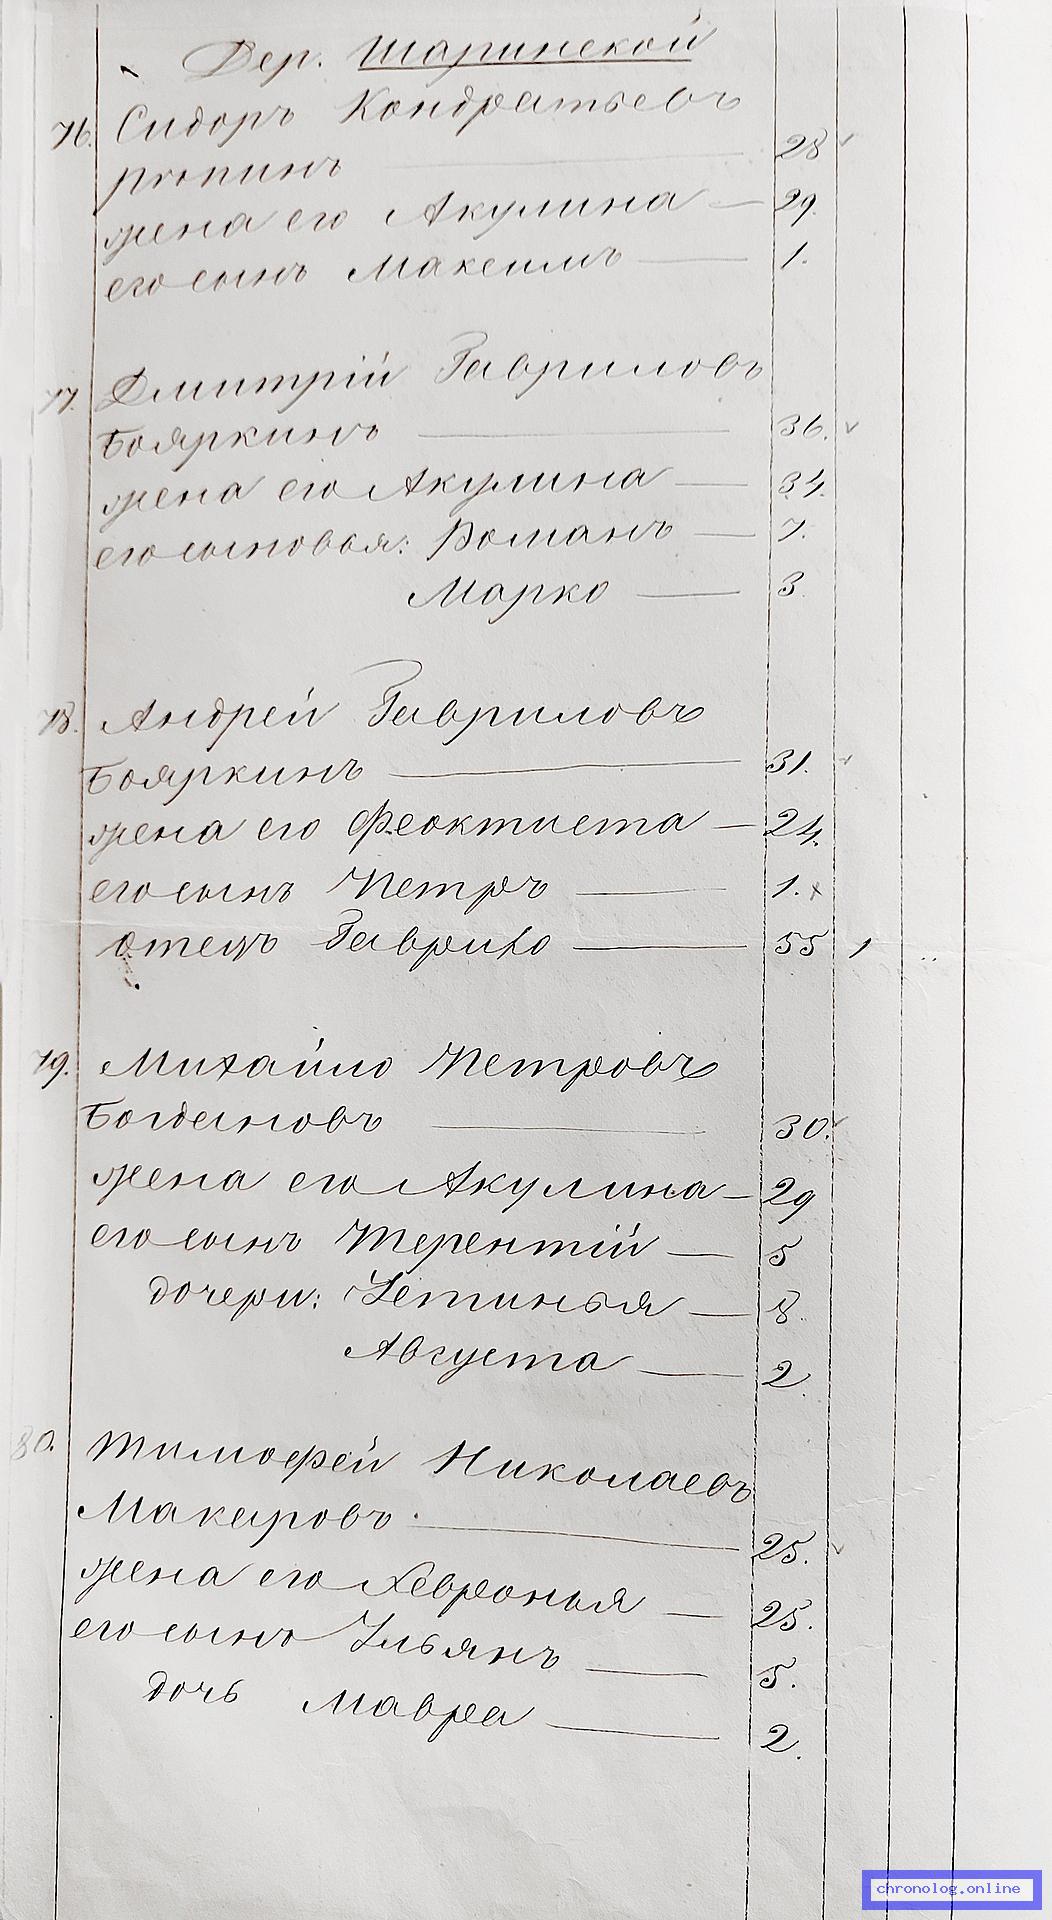 Дер. Шаринской
76. Сидоръ Кондратьевъ
28
жена его Акулина — 29.
его сынъ Максимъ — 1.
77. Дмитрій Гавриловъ
Бояркинъ — 36.
жена его Акулина — 34.
его сыновья: Романъ — 7.
Марко — 3
78. Андрей Гавриловъ
Бояркинъ — 31.
жена его Феоктиста — 24.
его сынъ Петръ — 1. x
отецъ Гаврило — 55 1
79. Михайло Петровъ
Богдановъ — 30.
жена его Акулина — 29
его сынъ Терентій — 5
дочери: Устинья — 8.
Августа — 2.
80. Тимофей Николаевъ
Макаровъ — 25.
жена его Хевронья — 25.
его сынъ Ульянъ — 5.
дочь Мавра — 2.
chronolog.online